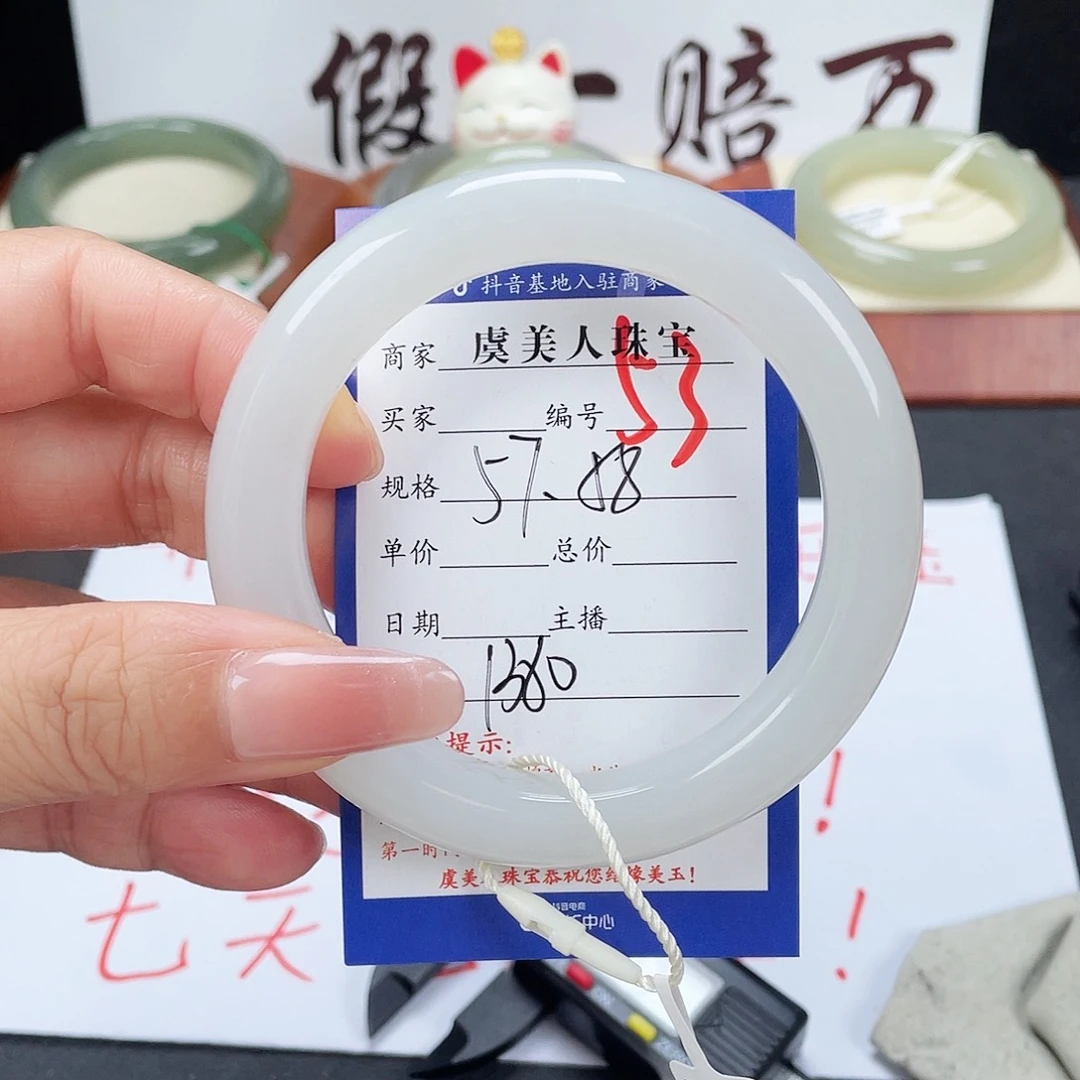 假一赔万
抖音基地入驻商家
商家 虞美人珠宝
买家 编号 53
规格 57.
单价 总价
日期 主播
1380
提示:
第一时
虞美 珠宝恭祝您结缘美玉!
抖音电商
中心
七天
!
!